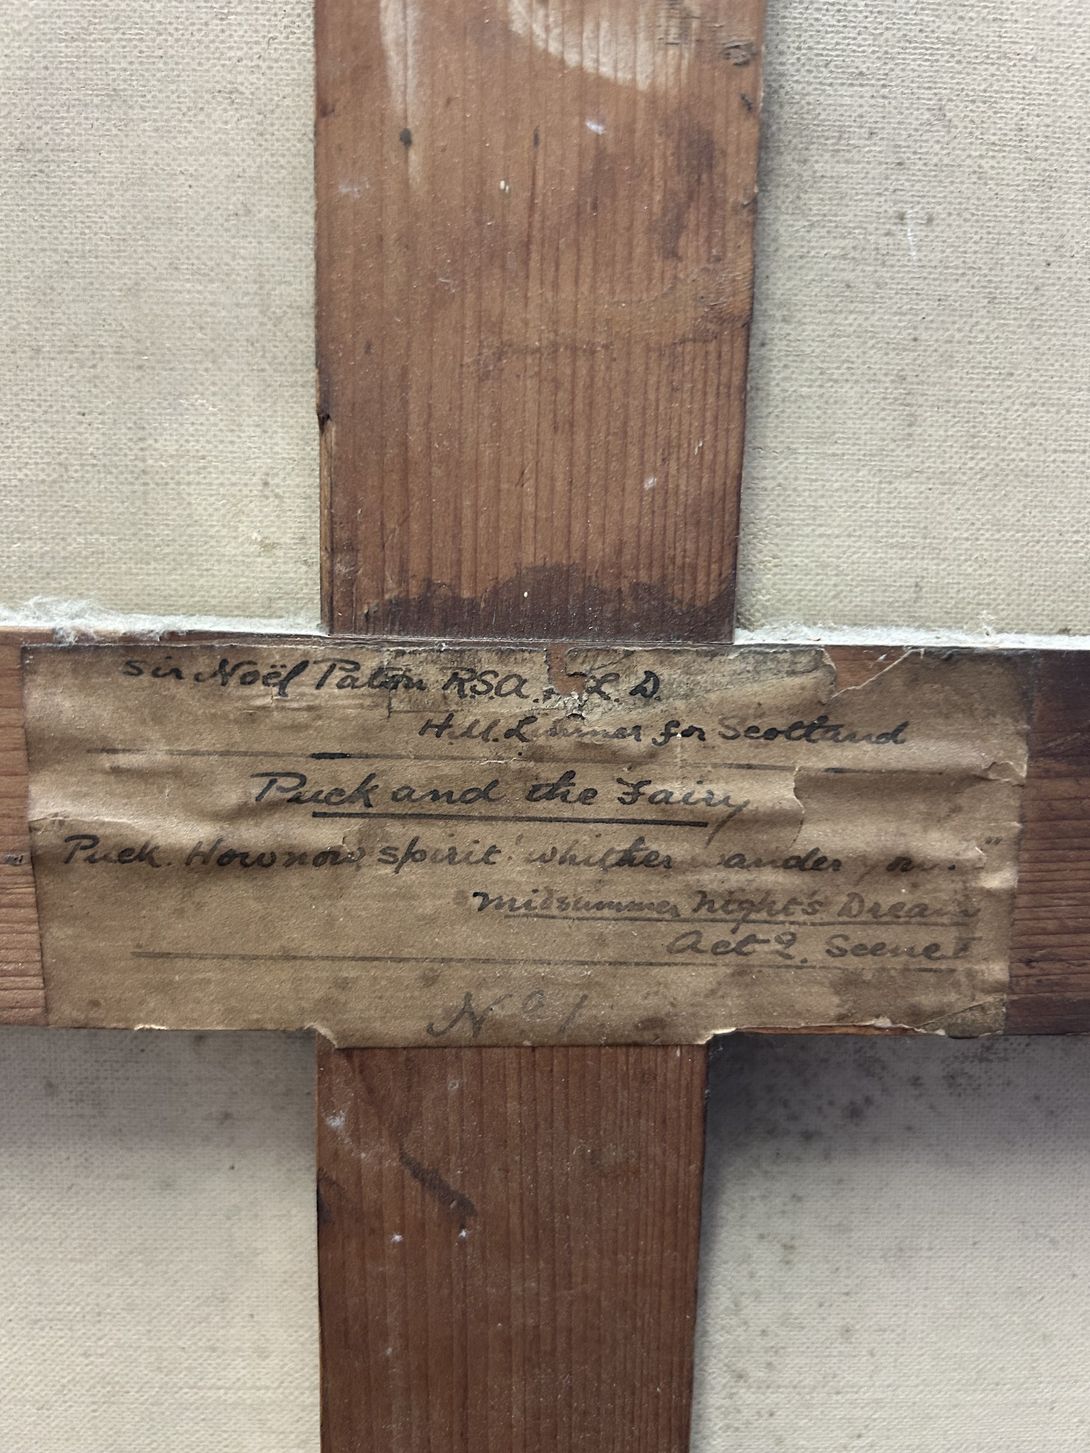 Sir Noël Paton R.S.A. L. D.
H.M. Limner for Scotland
Puck and the Fairy
Puck. How now, spirit! whither wander you. "
Midsummer Night's Dream
Act 2. Scene I
No 1